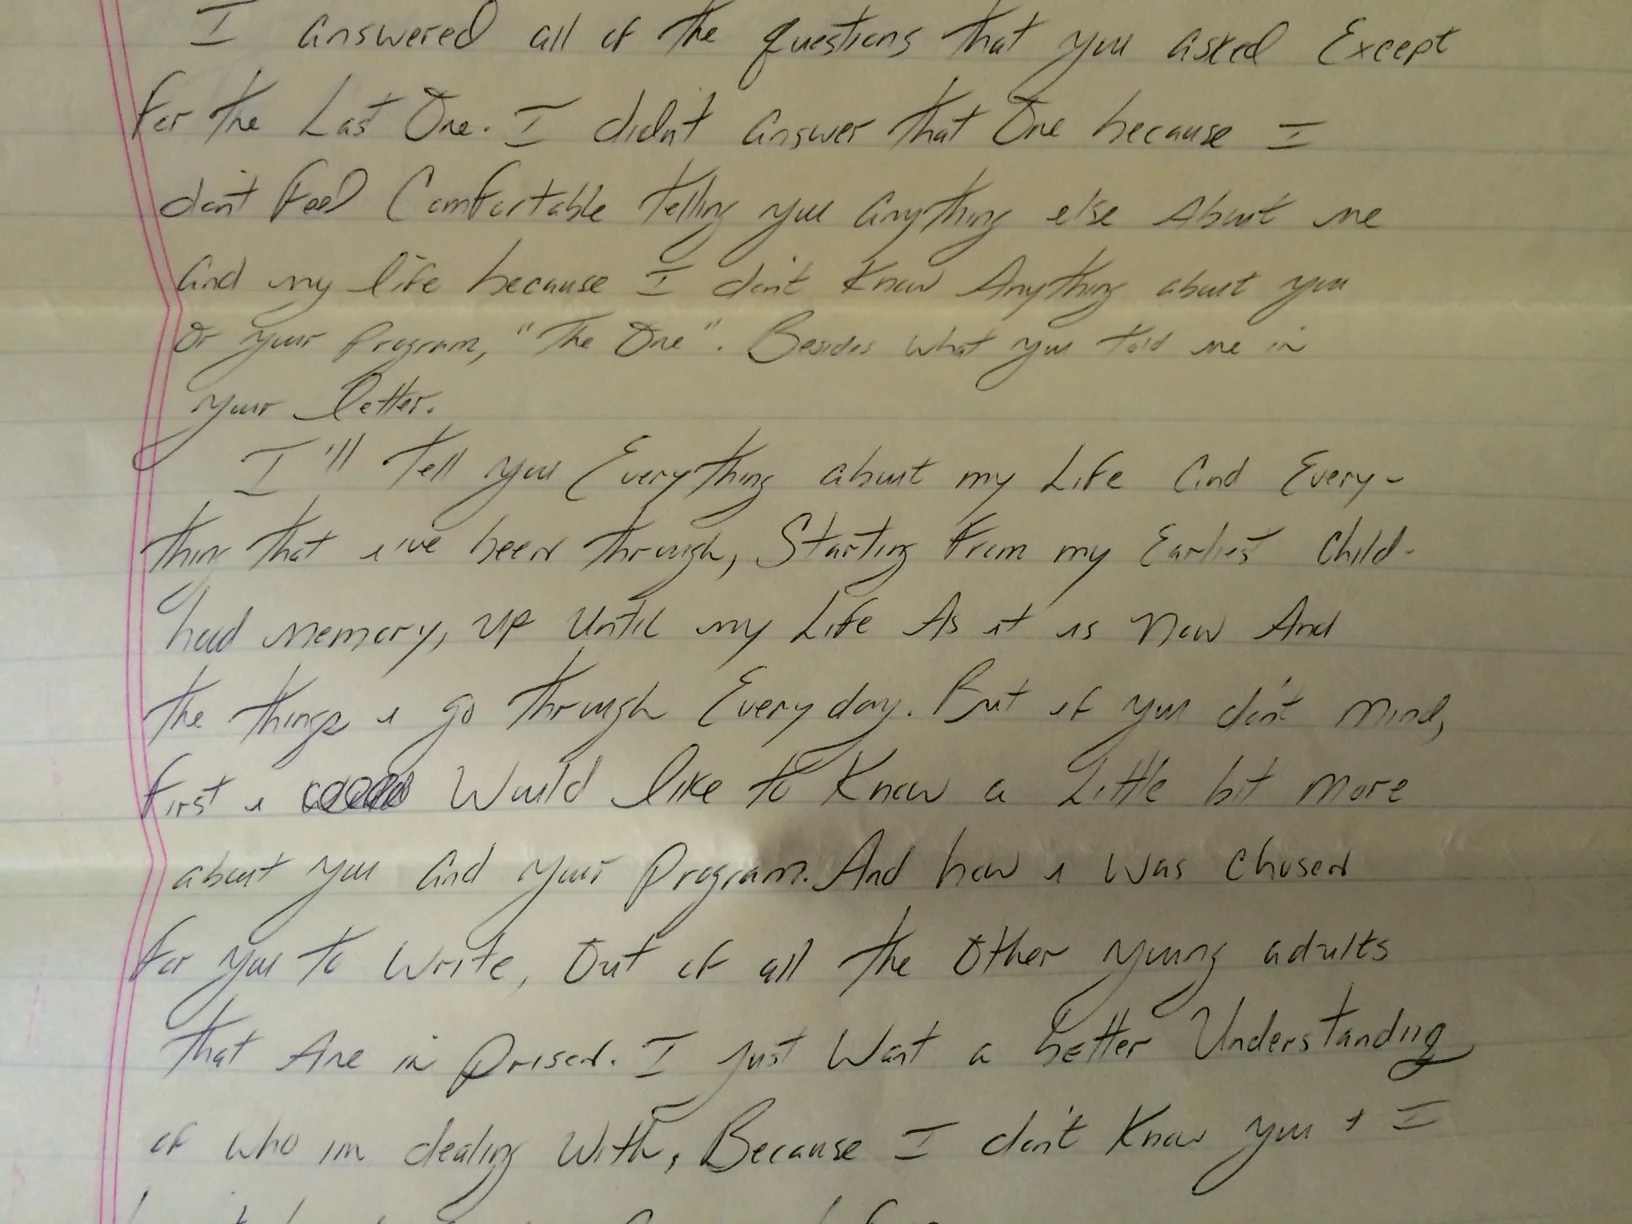 I answered all of the questions that you asked Except
for the Last One. I didn't answer that One because I
don't feel Comfortable telling you anything else About me
and my life because I don't know Anything about you
Or your Program, "The One". Besides what you told me in
your letter.
I'll tell you Everything about my Life and Every-
thing that i've been through, Starting from my Earliest Child-
hood memory, up Until my Life As it is Now And
the things i go through Everyday. But if you don't Mind,
first i Would like to Know a Little bit More
about you and your Program. And how i was Chosen
for you to Write, Out of all the Other young adults
that Are in Prison. I just Want a better Understanding
of who im dealing With, Because I don't Know you + I